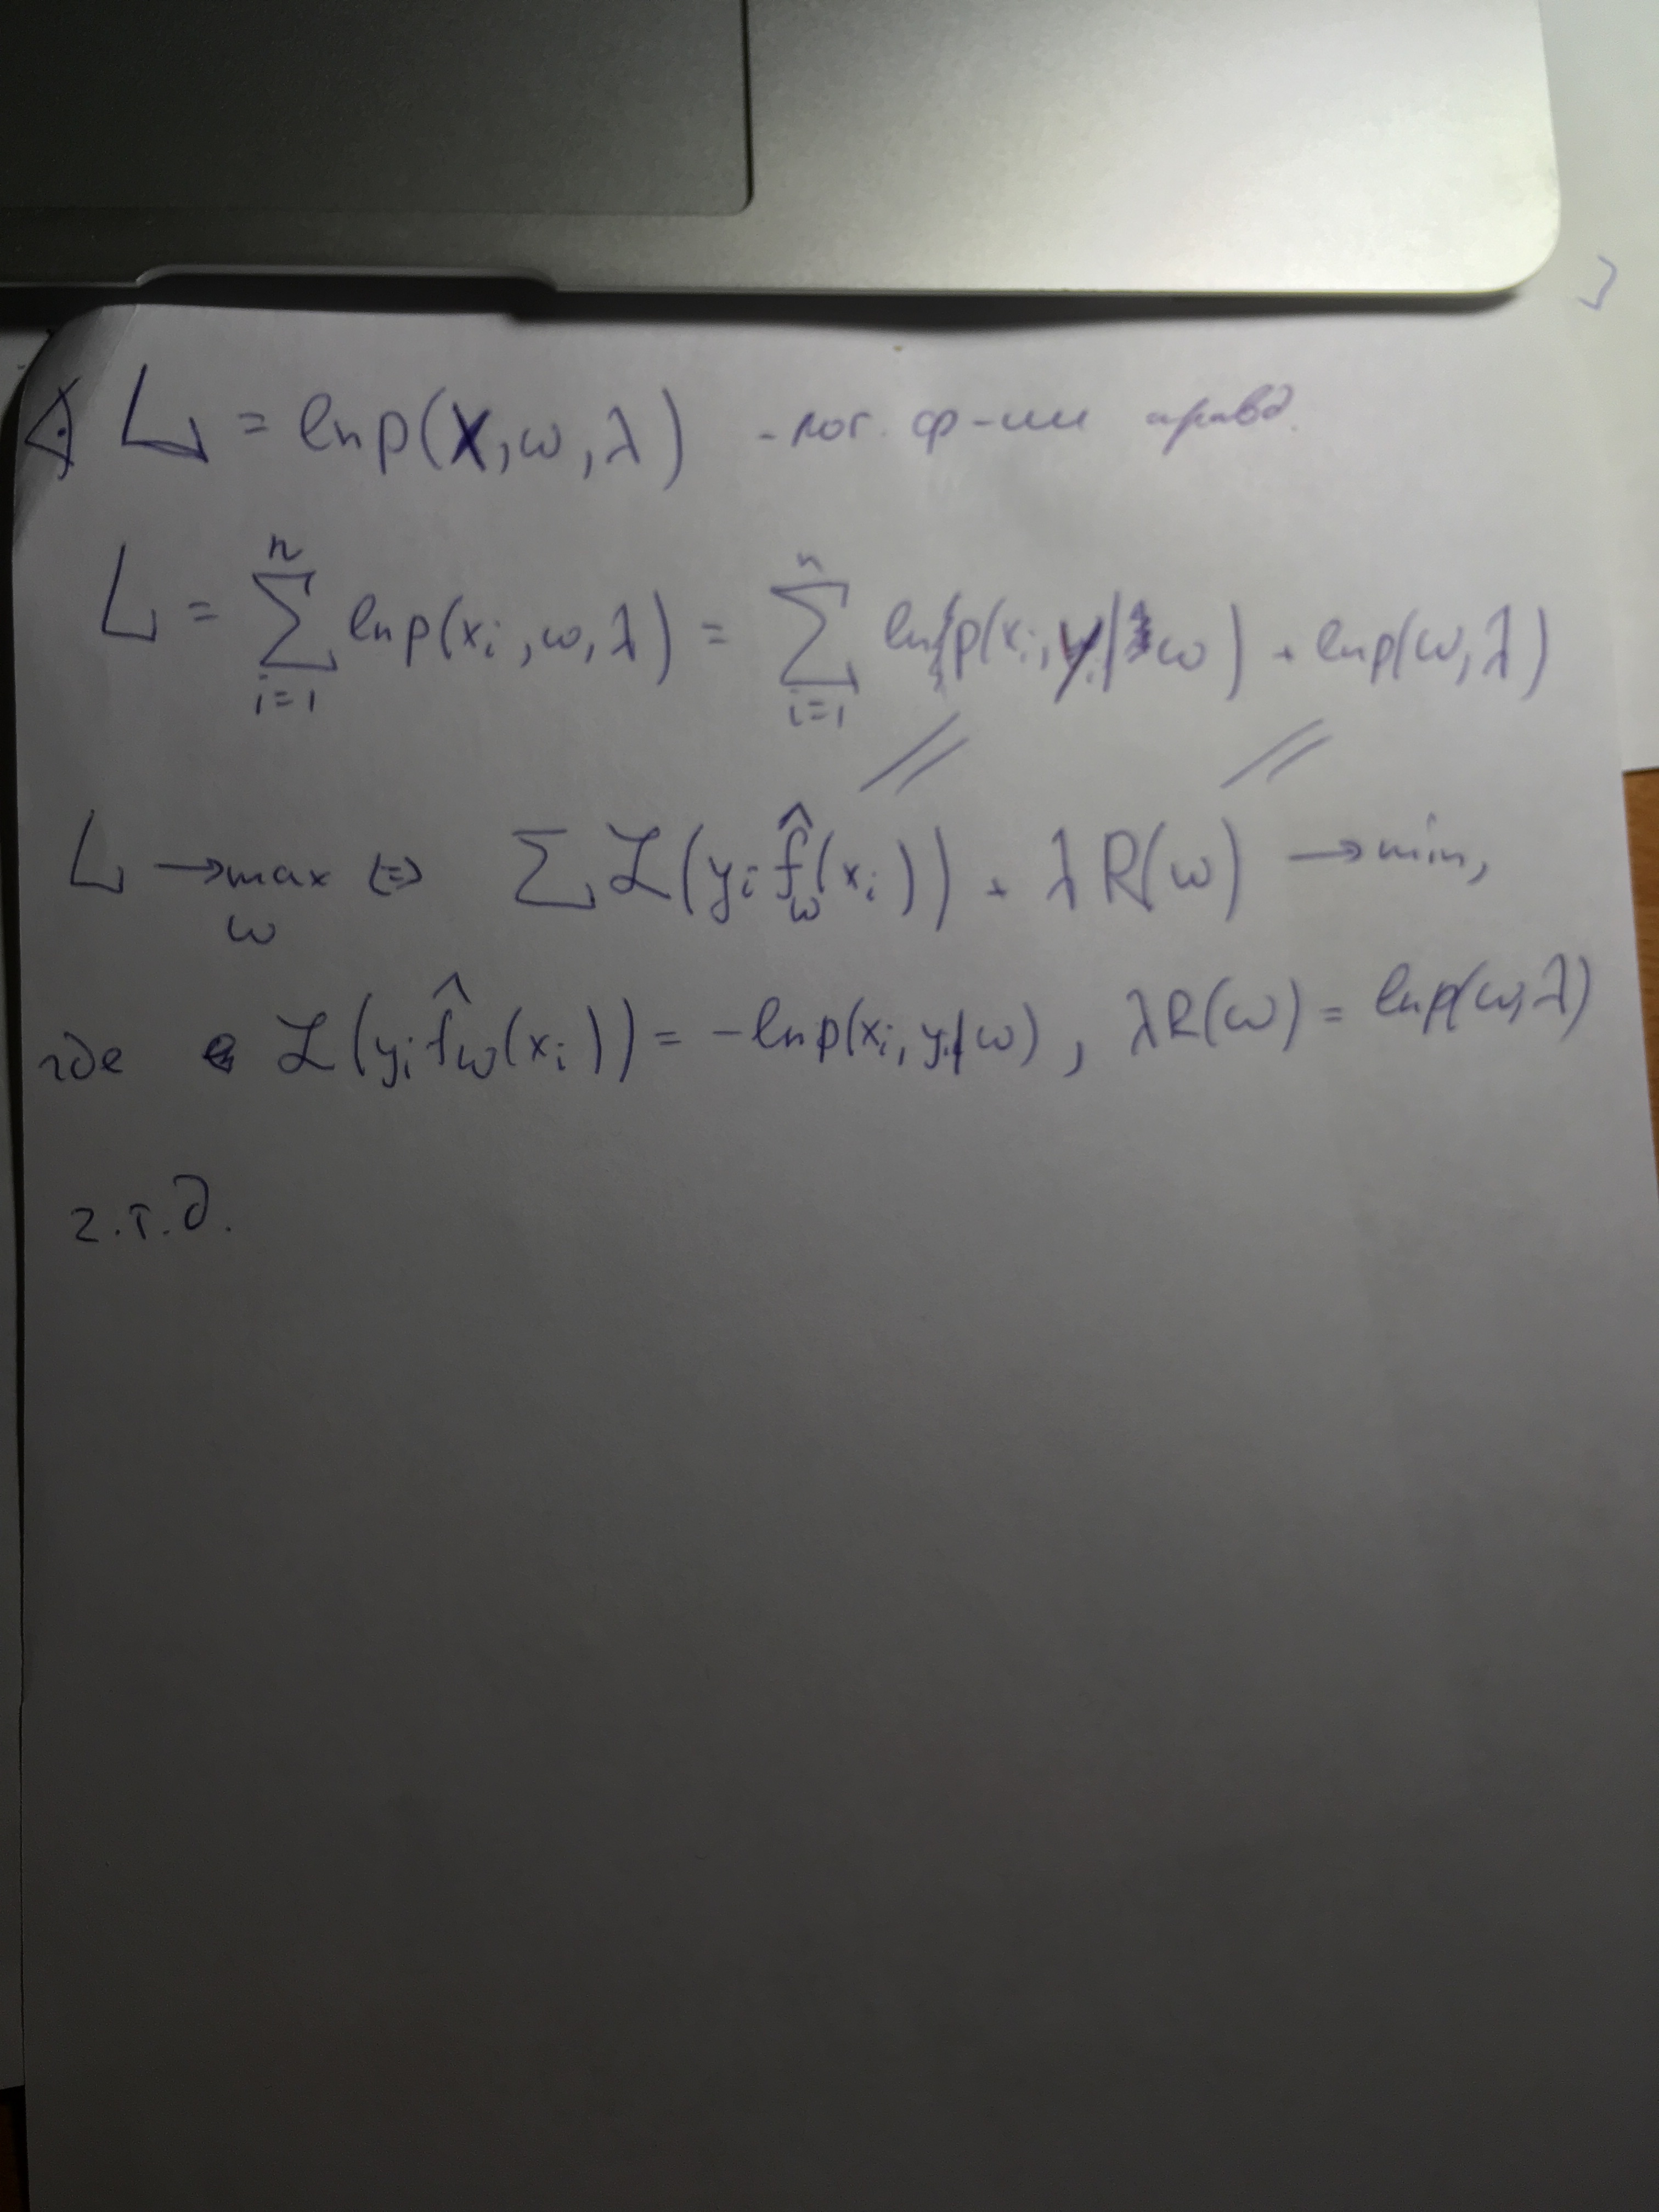 L = ln p(X, ω, λ) - лог. ф-ии правд.
L = ∑_{i=1}^{n} ln p(x_i, ω, λ) = ∑_{i=1}^{n} ln p(x_i, y_i | ω) + ln p(ω, λ)
L → max_ω ⇔ ∑ ℒ(y_i f̂_ω(x_i)) + λ R(ω) → min,
где ℒ(y_i f̂_ω(x_i)) = -ln p(x_i, y_i | ω), λR(ω) = ln p(ω, λ)
ч.т.д.